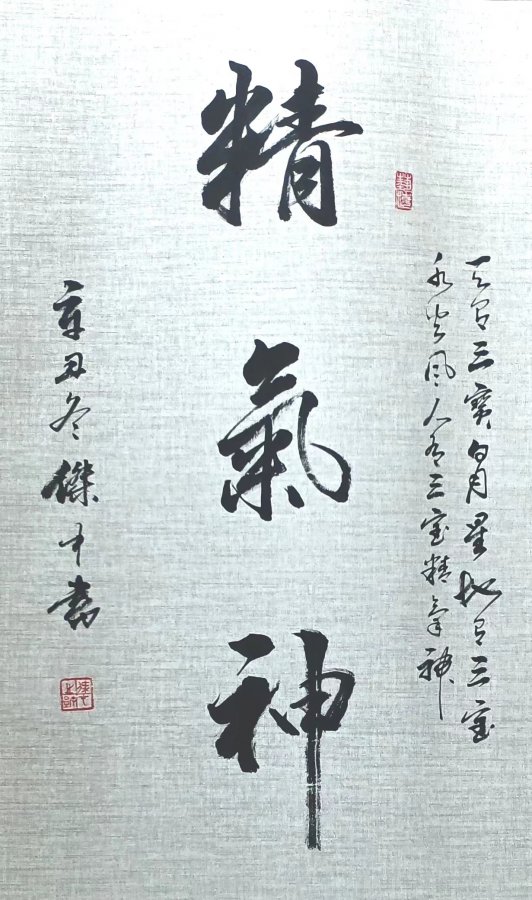 精氣神
天有三寶日月星地有三寶
水火風人有三寶精氣神
辛丑冬傑中書